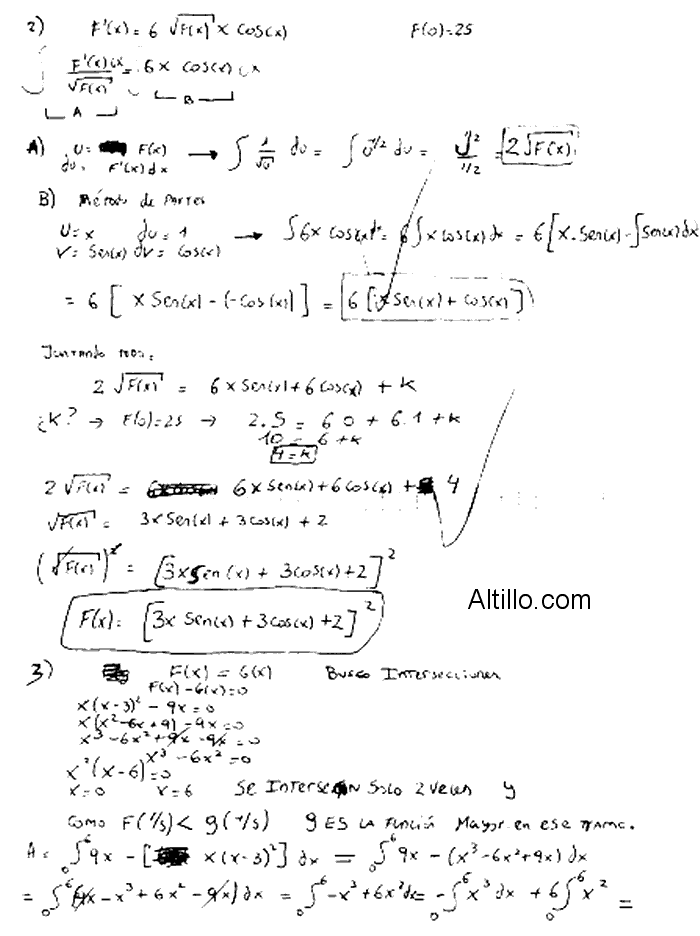 2) F'(x) = 6 √F(x) x cos(x) F(0)=25
∫ F'(x) dx / √F(x) = ∫ 6x cos(x) dx
A B
A) U = F(x) → ∫ 1/√U du = ∫ U^-1/2 du = U^1/2 / 1/2 = 2√F(x)
du = F'(x) dx
B) Método de Partes
U = x du = 1 → ∫6x cos(x)dx = 6∫x cos(x) dx = 6[x.Sen(x) - ∫Sen(x)dx]
V = Sen(x) dV = Cos(x)
= 6 [ x Sen(x) - (-Cos(x)) ] = 6 [x Sen(x) + cos(x)]
Juntando todo:
2 √F(x) = 6x Sen(x) + 6 cos(x) + K
¿K? → F(0)=25 → 2.5 = 6 0 + 6.1 + K
10 = 6 + K
4 = K
2 √F(x) = 6x Sen(x) + 6 cos(x) + 4
√F(x) = 3x Sen(x) + 3cos(x) + 2
(√F(x))² = [3x Sen(x) + 3cos(x) + 2]²
F(x) = [3x Sen(x) + 3cos(x) + 2]²
Altillo.com
3) F(x) = G(x) Busco Intersecciones
F(x) - G(x) = 0
x(x-3)² - 9x = 0
x(x² - 6x + 9) - 9x = 0
x³ - 6x² + 9x - 9x = 0
x³ - 6x² = 0
x²(x-6) = 0
x = 0 x = 6 Se Intersecan Solo 2 veces y
como F(1/5) < g(1/5) g es la función Mayor en ese tramo.
A = ₀∫⁶ 9x - [x(x-3)²] dx = ₀∫⁶ 9x - (x³ - 6x² + 9x) dx
= ₀∫⁶ (9x - x³ + 6x² - 9x) dx = ₀∫⁶ -x³ + 6x² dx = -₀∫⁶ x³ dx + 6 ₀∫⁶ x² =